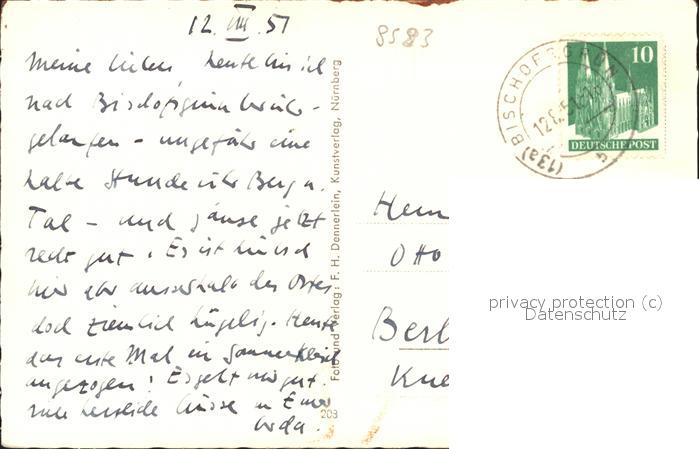 12. VIII. 51
8583
Meine Lieben heute bin ich
nach Bischofsgrün
gelaufen – ungefähr eine
halbe Stunde über Berg u.
Tal – und jetzt
recht gut. Es ist hübsch
hier aber ausserhalb des Ortes
doch ziemlich hügelig. Heute
das erste Mal im Sommerkleid
angezogen! Es geht mir gut.
herzliche Grüsse
Foto und Verlag: F. H. Dennerlein, Kunstverlag, Nürnberg
203
(13a) BISCHOFSGRÜN
12.8.51
10
DEUTSCHE POST
Herrn
Otto
Berl
Kne
privacy protection (c)
Datenschutz